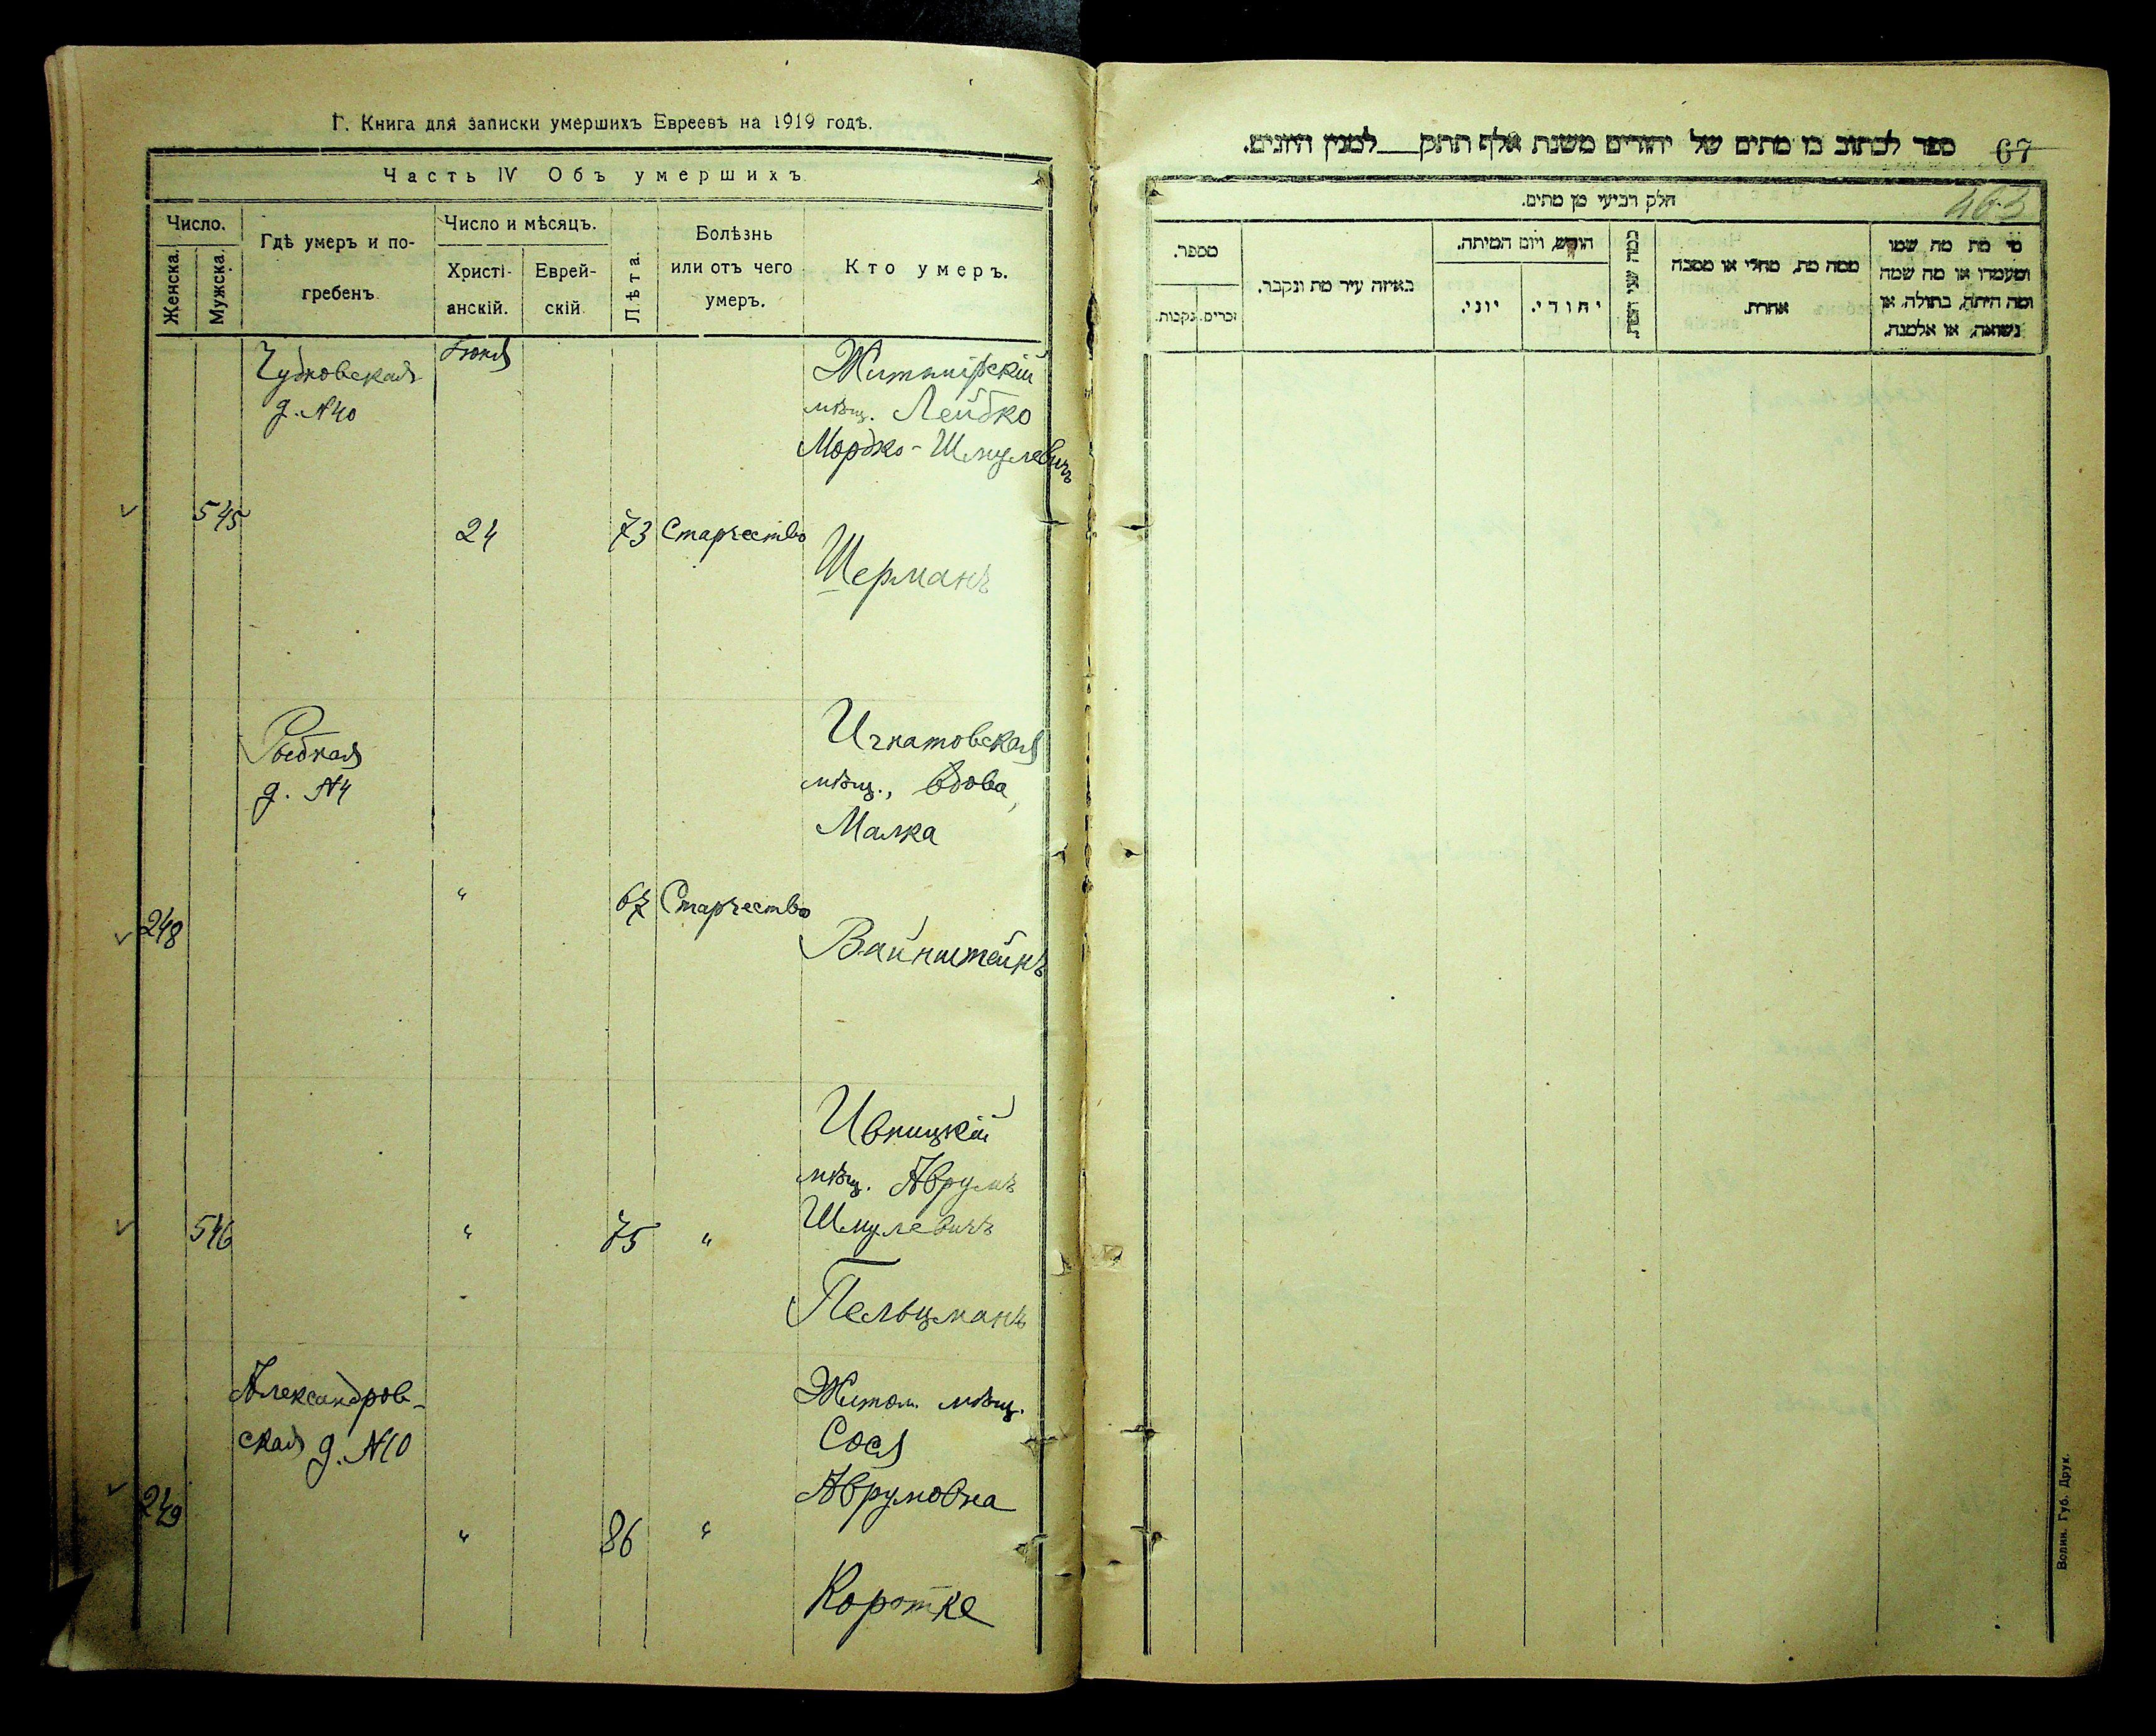 Г. Книга для записки умершихъ Евреевъ на 1919 годъ.
Часть IV Объ умершихъ
Число.
Женска.
Мужска.
Гдѣ умеръ и по-
гребенъ
Число и мѣсяцъ.
Христі-
анскій.
Еврей-
скій
Лѣта.
Болѣзнь
или отъ чего
умеръ.
Кто умеръ.
Чудновская
д. №40
Іюня
Житомірскій
мѣщ. Лейбко
Мордко-Шмулевичъ
545
24
73
Старчество
Шерманъ
Рыбная
д. №4
Игнатовская
мѣщ., вдова,
Малка
248
"
67
Старчество
Вайнштейнъ
Ивницкій
мѣщ. Аврумъ
Шмулевичъ
546
"
75
"
Пельцманъ
Александров-
ская д. №10
Житом. мѣщ.
Сося
Аврумовна
249
"
86
"
Коротке
ספר לכתוב בו מתים של יהודים משנת אלף תתק___למנין היונים.
67
463
חלק רביעי מן מתים.
מספר.
זכרים.
נקבות.
באיזה עיר מת ונקבר.
הודש, ויום המיתה.
יוני.
יהודי.
כמה שני המת.
ממה מת, מחלי או מסבה
אחרת.
מי מת מה שמו
ומעמדו או מה שמה
ומה היתה, בתולה, או
נשואה, או אלמנה.
Волин. Губ. Друк.